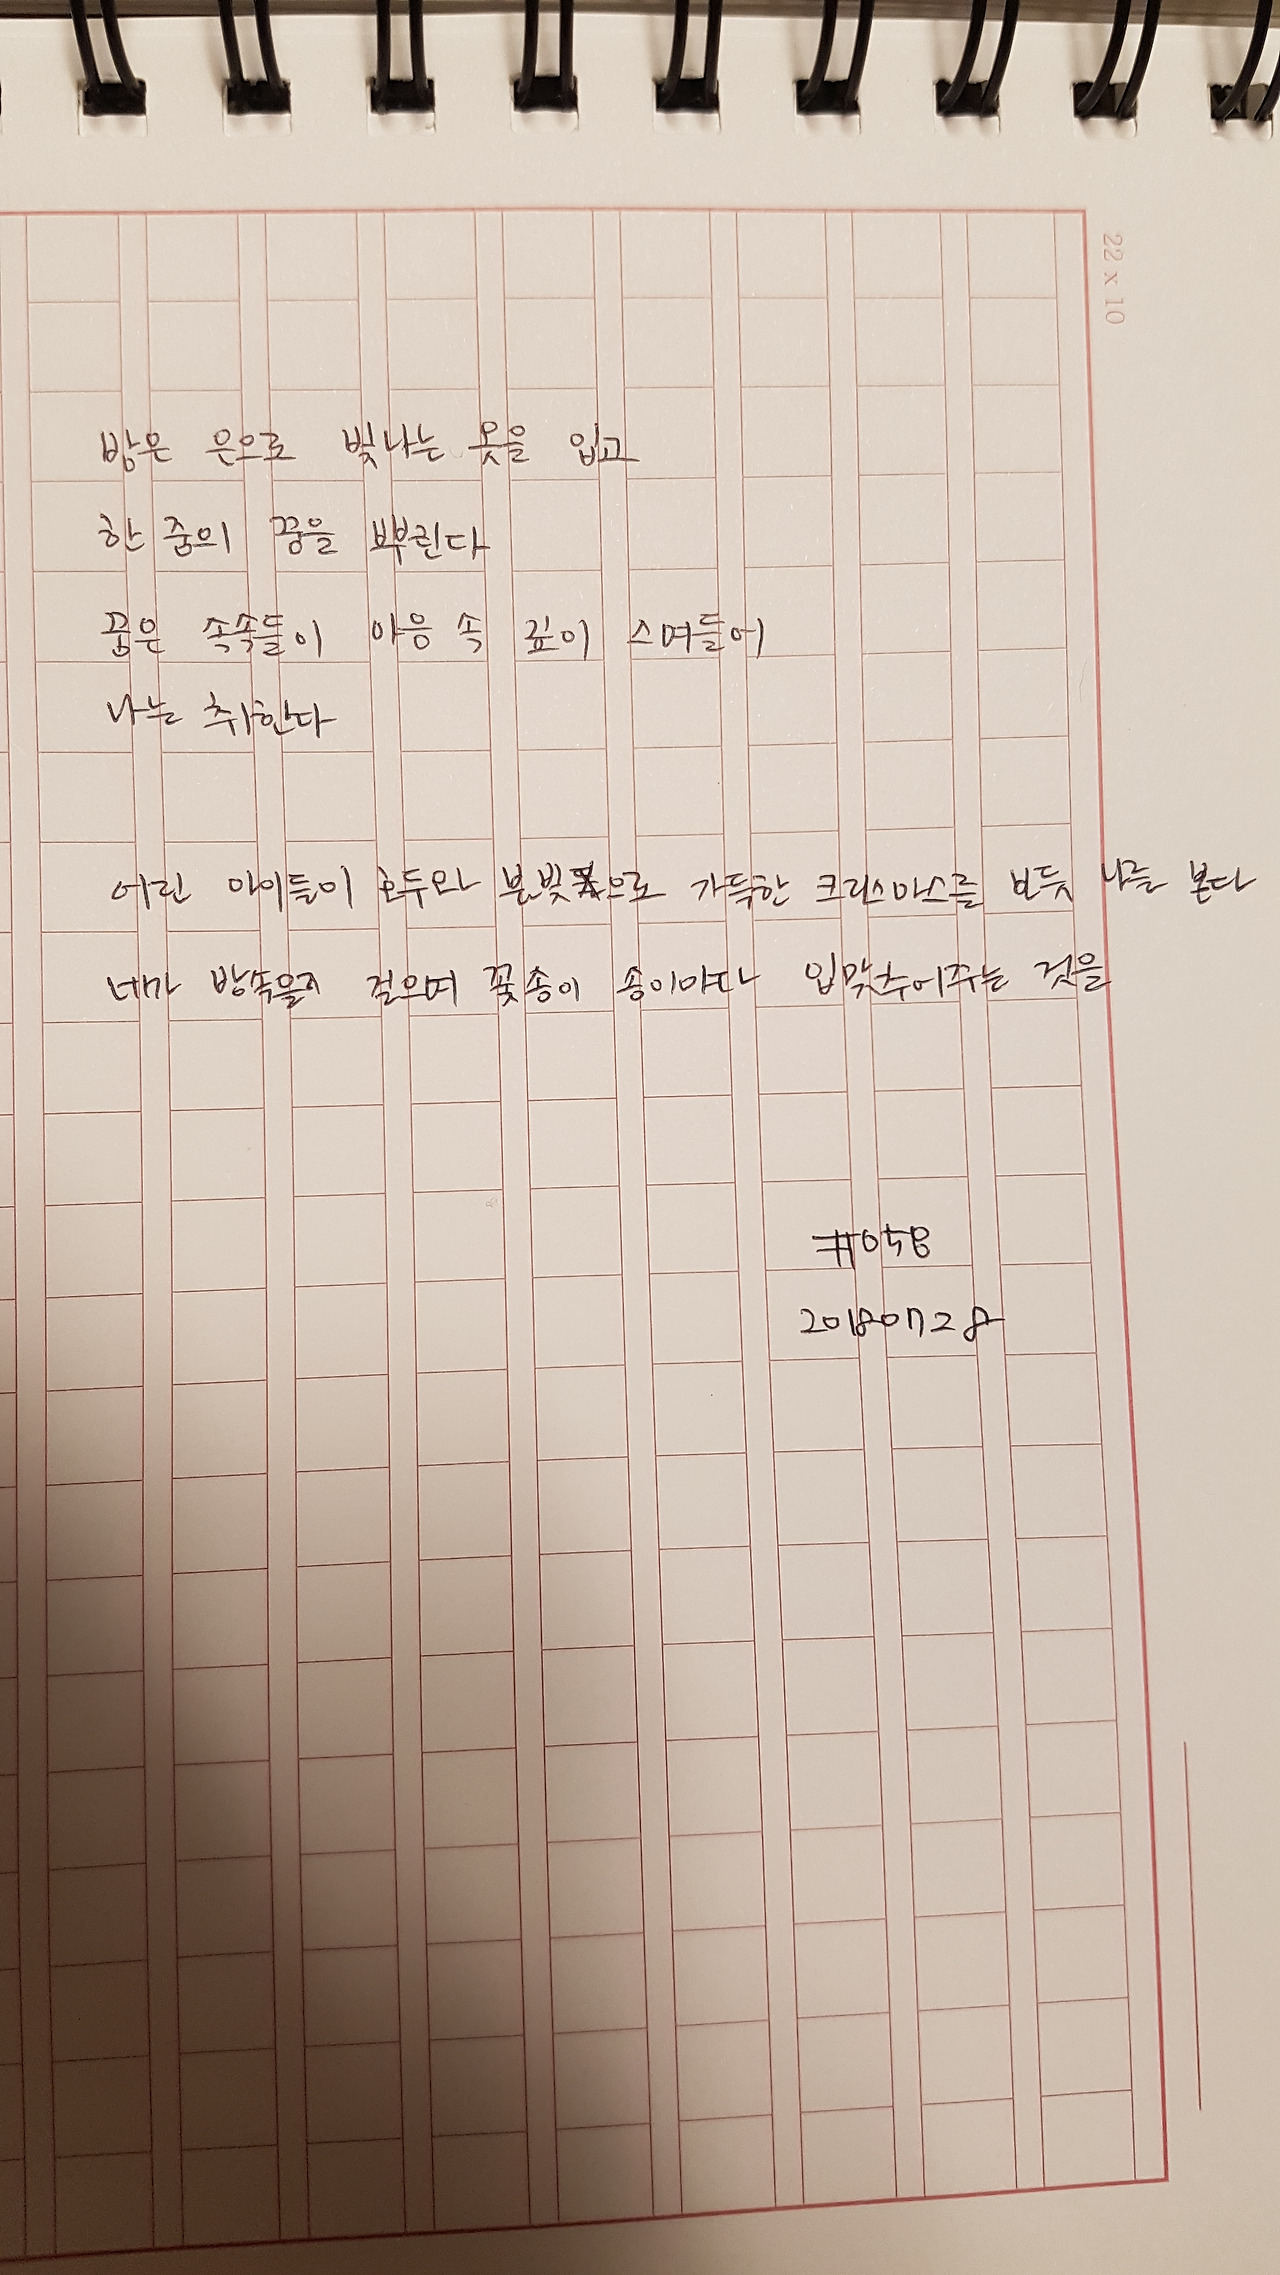 22 x 10
밤은 은으로 빛나는 옷을 입고
한 줌의 꿈을 뿌린다
꿈은 속속들이 마음 속 깊이 스며들어
나는 취한다
어린 아이들이 호두와 불빛으로 가득한 크리스마스를 보듯 나를 본다
네가 밤속을 걸으며 꽃송이 송이마다 입맞추어주는 것을
#058
20180728